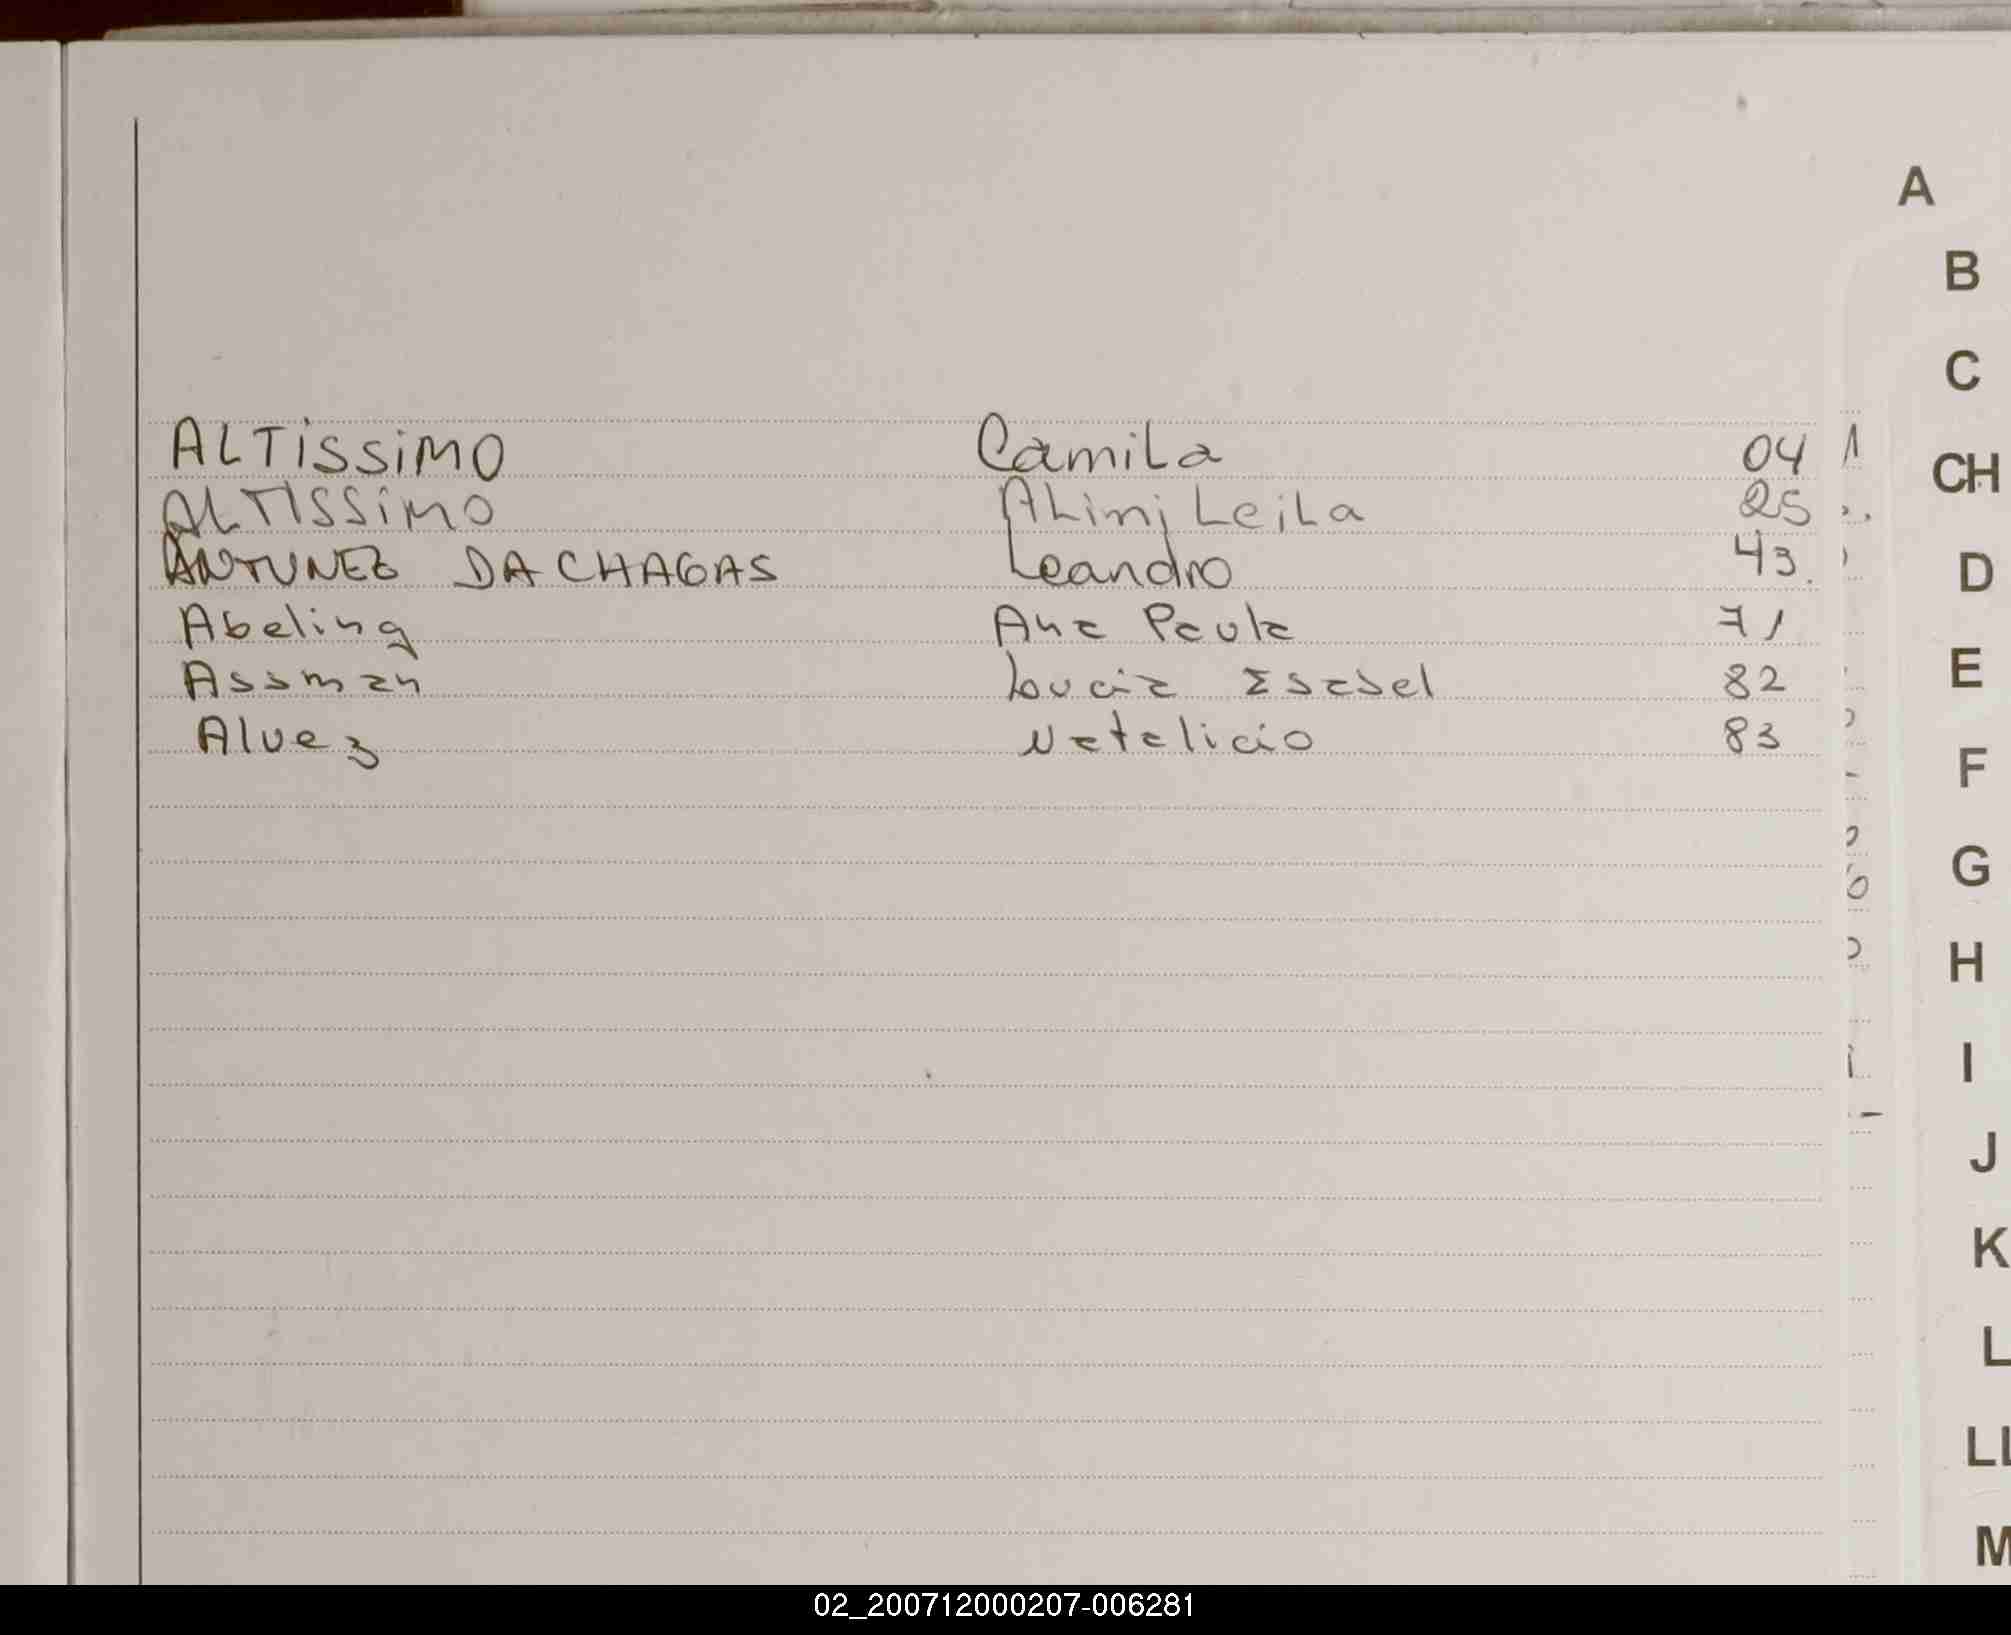 A
B
C
ALTISSIMO Camila 04
CH
ALTISSIMO ALini LeiLa 25
ANTUNEZ DA CHAGAS Leandro 43.
D
Abeling Ana Paula 71
Assman Lucia Isabel 82
E
Alvez Natalicio 83
F
G
H
I
J
K
L
LL
M
02_200712000207-006281